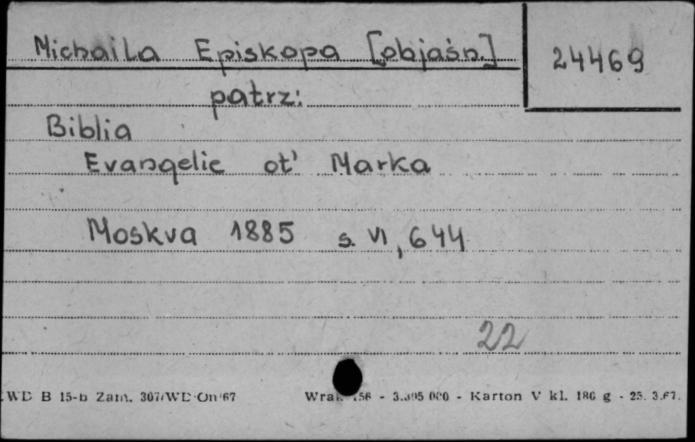 Michaila Episkopa [objaśn.] 24469
patrz:
Biblia
Evangelie ot' Marka
Moskva 1885 s. VI, 644
22
WD B 15-b Zam. 307/WD On 67 - 3.395 000 - Karton V kl. 180 g - 25. 3.67.